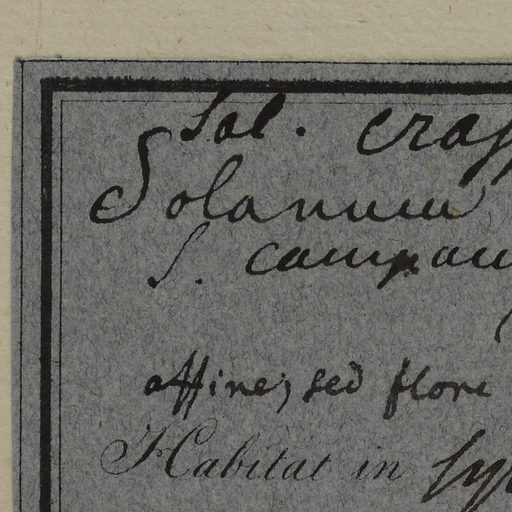 Sol. crass
Solanum
S. campan
affine; sed flore
Habitat in syl